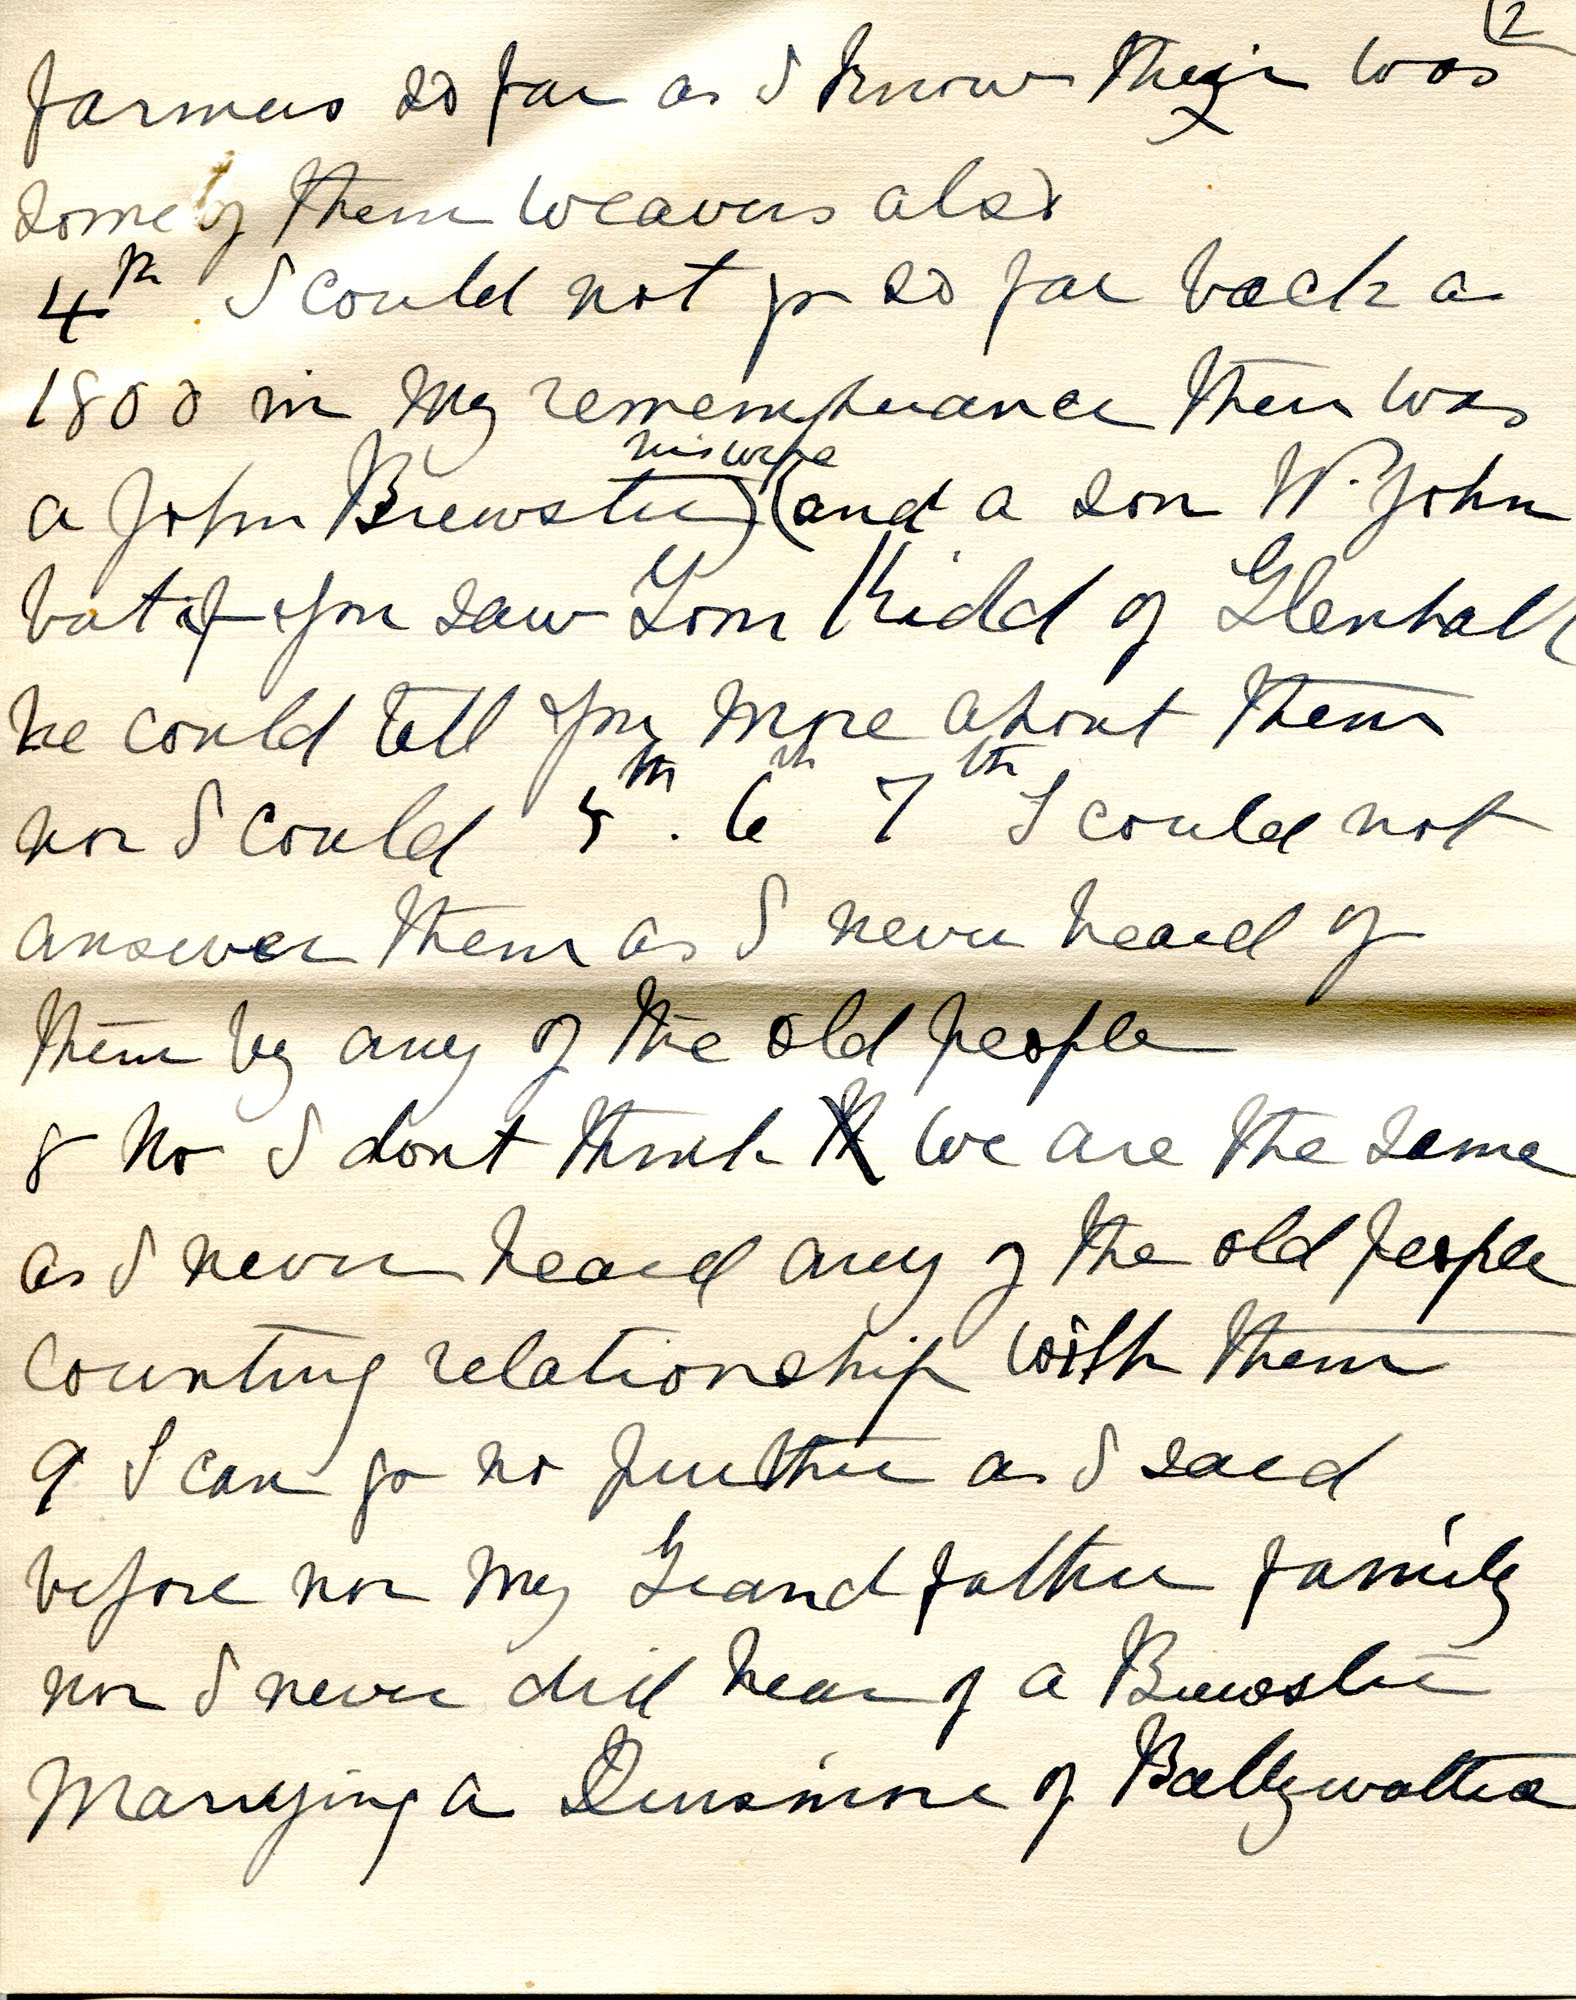 (2
farmers so far as I know their was
some of them weavers also
4th I could not go so far back as
1800 in my rememberance their was
his wife
a John Brewster) (and a son W. John
but if you saw Tom Kidd of Glenhall
he could tell you more about them
nor I could 5th. 6th 7th I could not
answer them as I never heard of
them by any of the old people
8 No I dont think we are the same
as I never heard any of the old people
counting relationship with them
9 I can go no further as I said
before nor my Grandfather family
nor I never did hear of a Brewster
Marrying a Dunsmore of Ballywatter